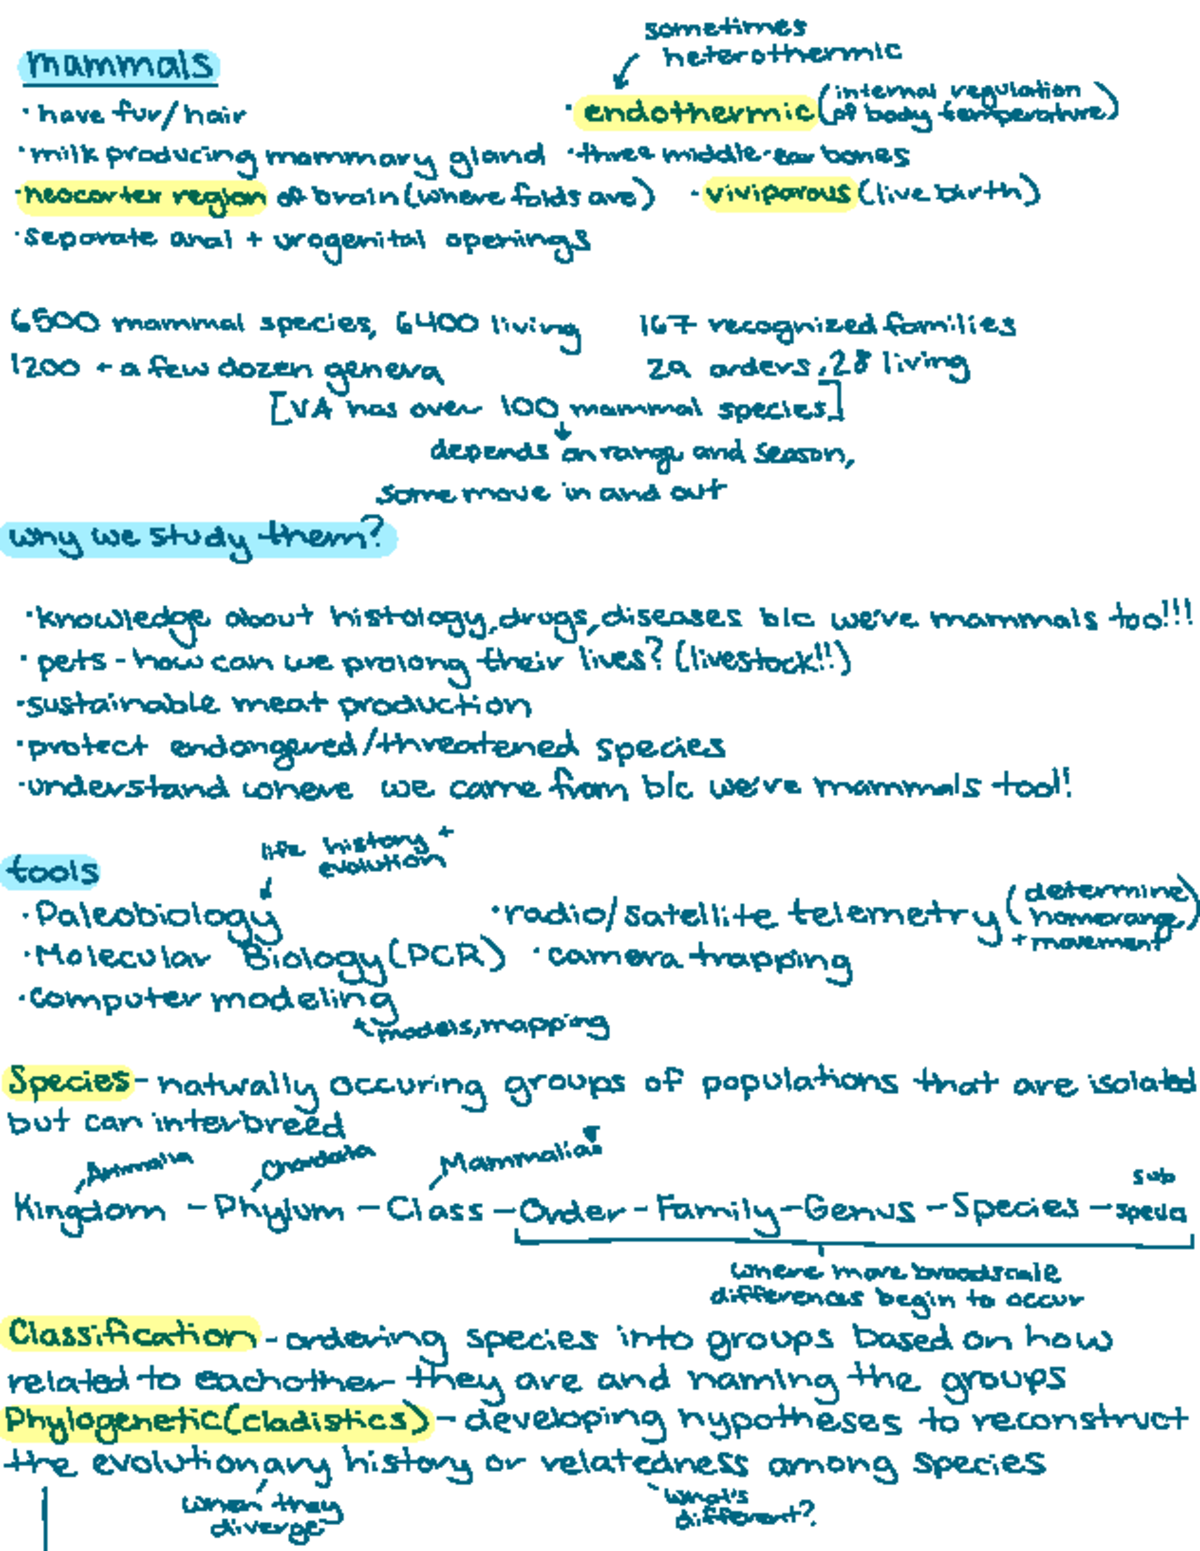 sometimes
heterothermic
mammals
· have fur/hair
· endothermic (internal regulation of body temperature)
· milk producing mammary gland
· three middle-ear bones
· neocortex region of brain (where folds are)
· viviparous (live birth)
· separate anal + urogenital openings
6500 mammal species, 6400 living
167 recognized families
1200 + a few dozen genera
29 orders, 28 living
[VA has over 100 mammal species]
depends on range and season,
some move in and out
why we study them?
· knowledge about histology, drugs, diseases b/c we're mammals too!!!
· pets - how can we prolong their lives? (livestock!!)
· sustainable meat production
· protect endangered/threatened species
· understand where we came from b/c we're mammals too!!
life history +
evolution
tools
· Paleobiology
· radio/satellite telemetry (determine homerange + movement)
· Molecular Biology (PCR)
· camera trapping
· computer modeling
models, mapping
Species - naturally occuring groups of populations that are isolated
but can interbreed
Animalia Chordata Mammalia
Kingdom - Phylum - Class - Order - Family - Genus - Species - sub
where more broadscale
differences begin to occur
Classification - ordering species into groups based on how
related to eachother they are and naming the groups
Phylogenetic (cladistics) - developing hypotheses to reconstruct
the evolutionary history or relatedness among species
when they
diverge
what's
different?